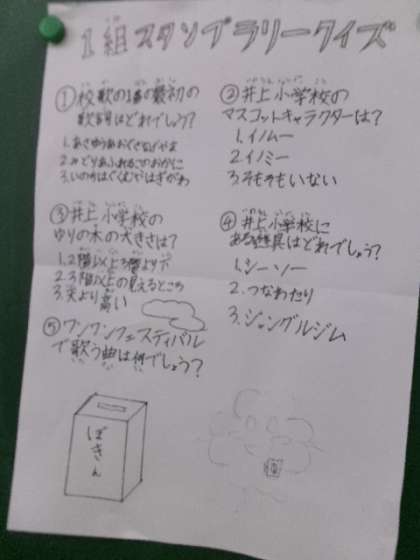 1組スタンプラリークイズ
①校歌の1番の最初の
歌詞はどれでしょう?
1.あさゆうあおぐさなげやま
2.みどりあふれるこのおかに
3.いのちはぐくむやはぎがわ
②井上小学校の
マスコットキャラクターは?
1.イノムー
2.イノミー
3.そもそもいない
③井上小学校の
ゆりの木の大きさは?
1.2階以上3階より下
2.3階以上の見えるところ
3.天より高い
④井上小学校に
ある遊具はどれでしょう?
1.シーソー
2.つなわたり
3.ジャングルジム
⑤ワンワンフェスティバル
で歌う曲は何でしょう?
ぼきん